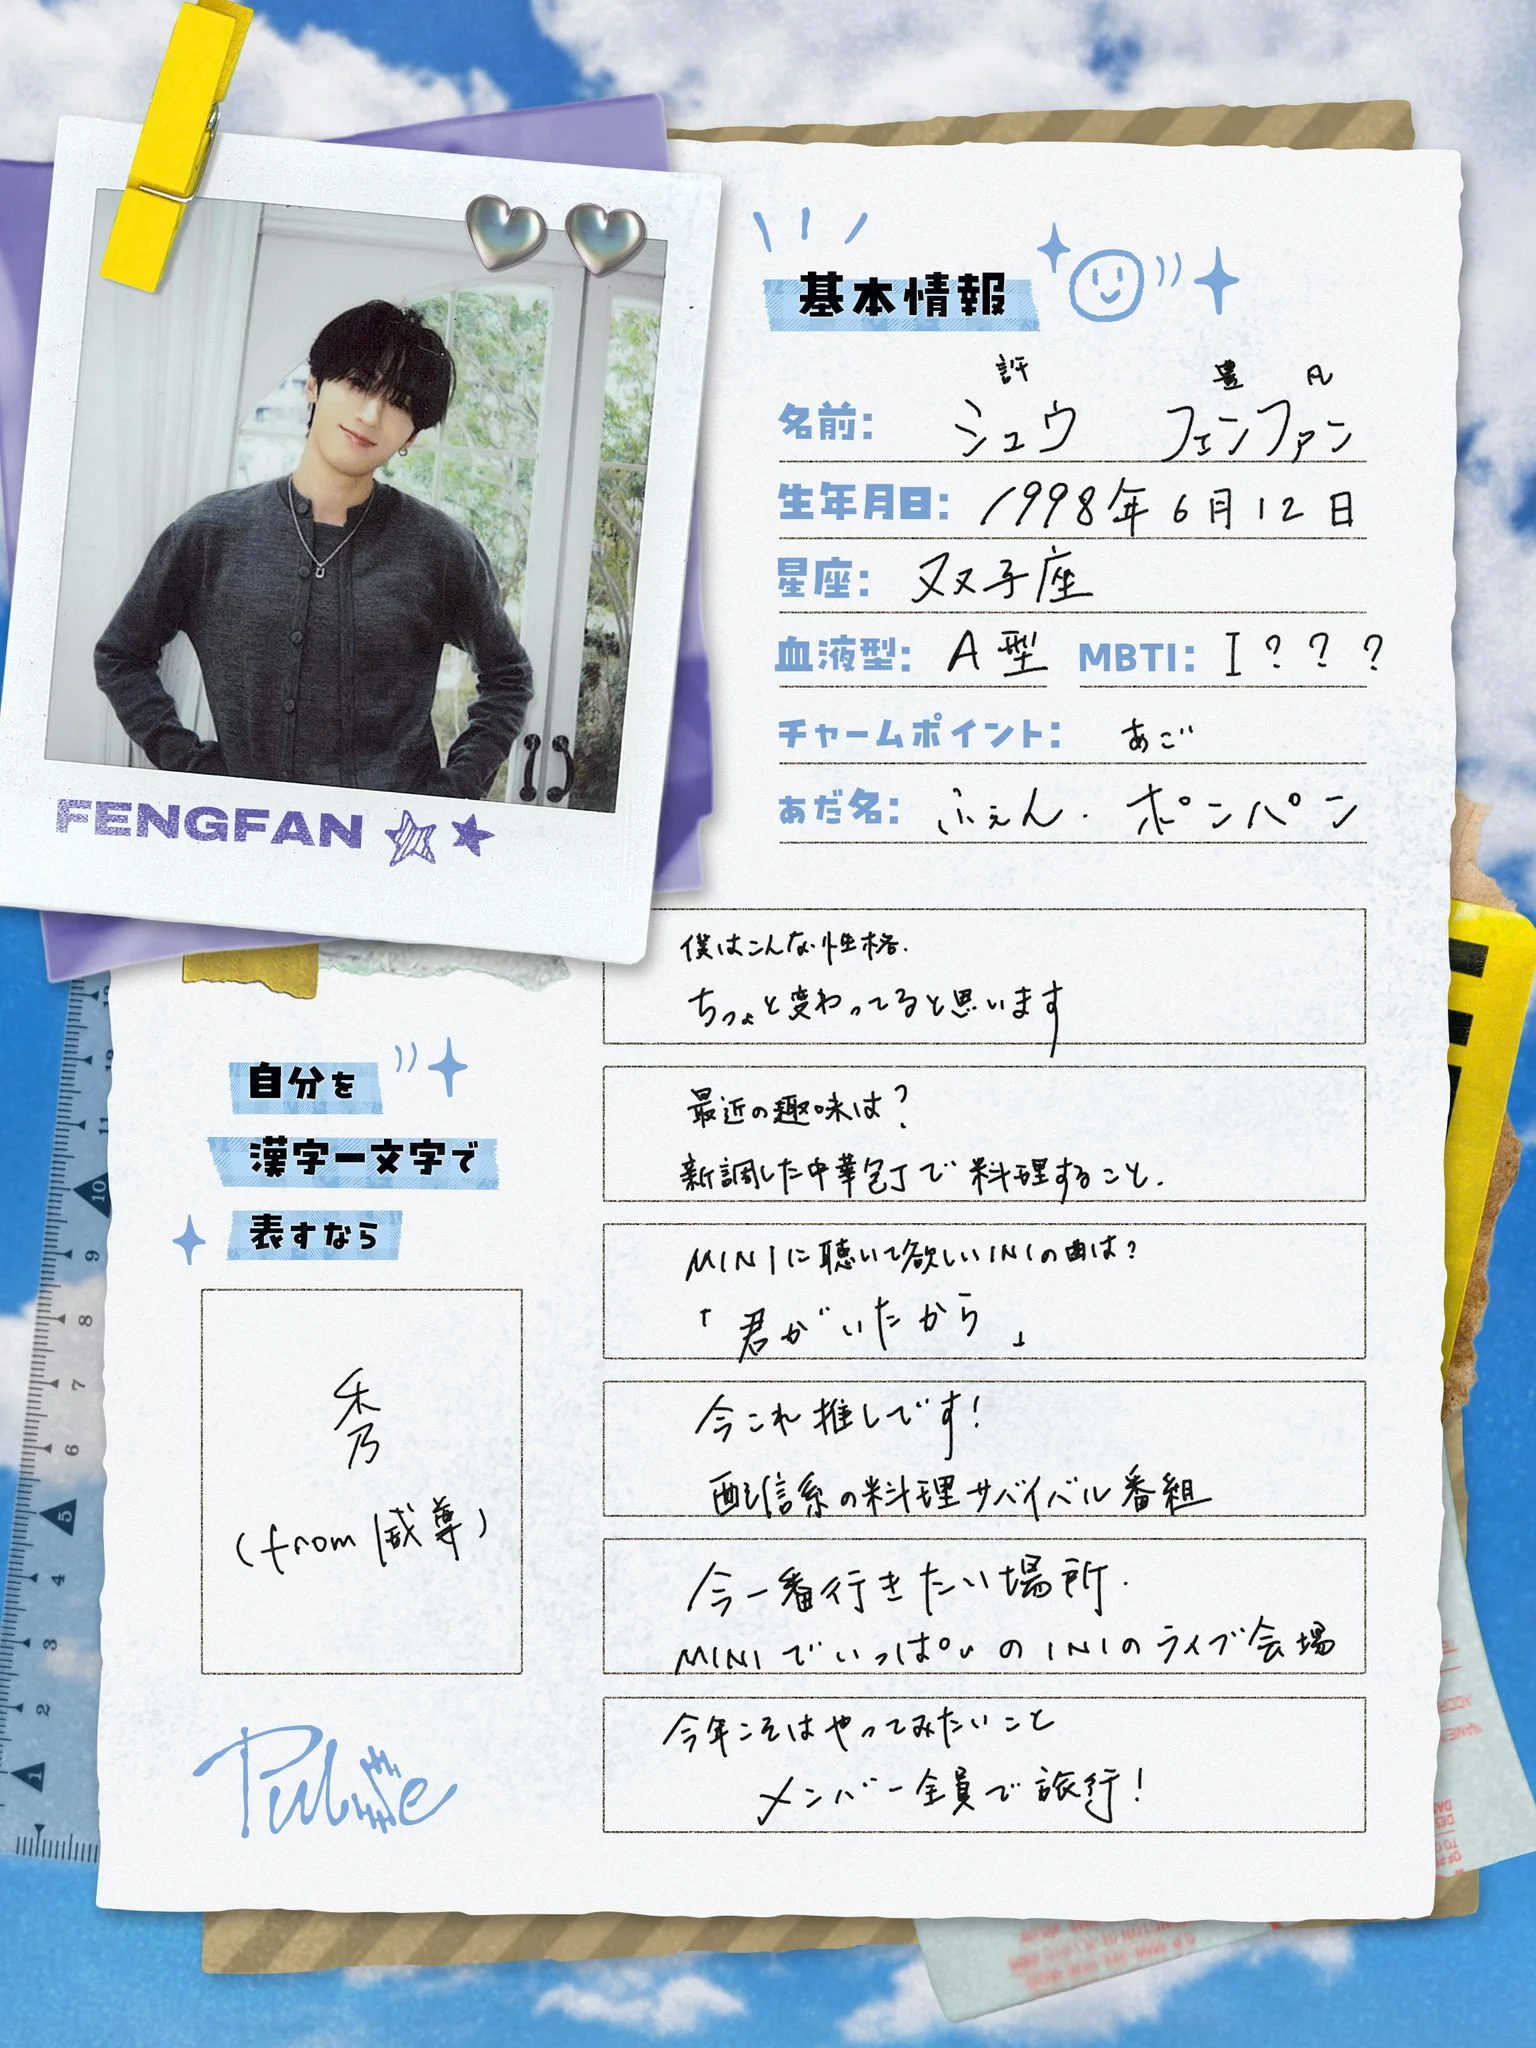 FENGFAN
基本情報
許 豊 凡
名前: シュウ フェンファン
生年月日: 1998年6月12日
星座: 双子座
血液型: A型 MBTI: I???
チャームポイント: あご
あだ名: ふぇん・ポンパン
僕はこんな性格.
ちょっと変わってると思います
最近の趣味は?
新調した中華包丁で料理すること.
MINIに聴いて欲しいINIの曲は?
「君がいたから」
今これ推しです!
配信系の料理サバイバル番組
今一番行きたい場所.
MINIでいっぱいのINIのライブ会場
今年こそはやってみたいこと
メンバー全員で旅行!
自分を
漢字一文字で
表すなら
秀
(from 威尊)
Pulse
10
9
8
7
6
5
4
3
2
1